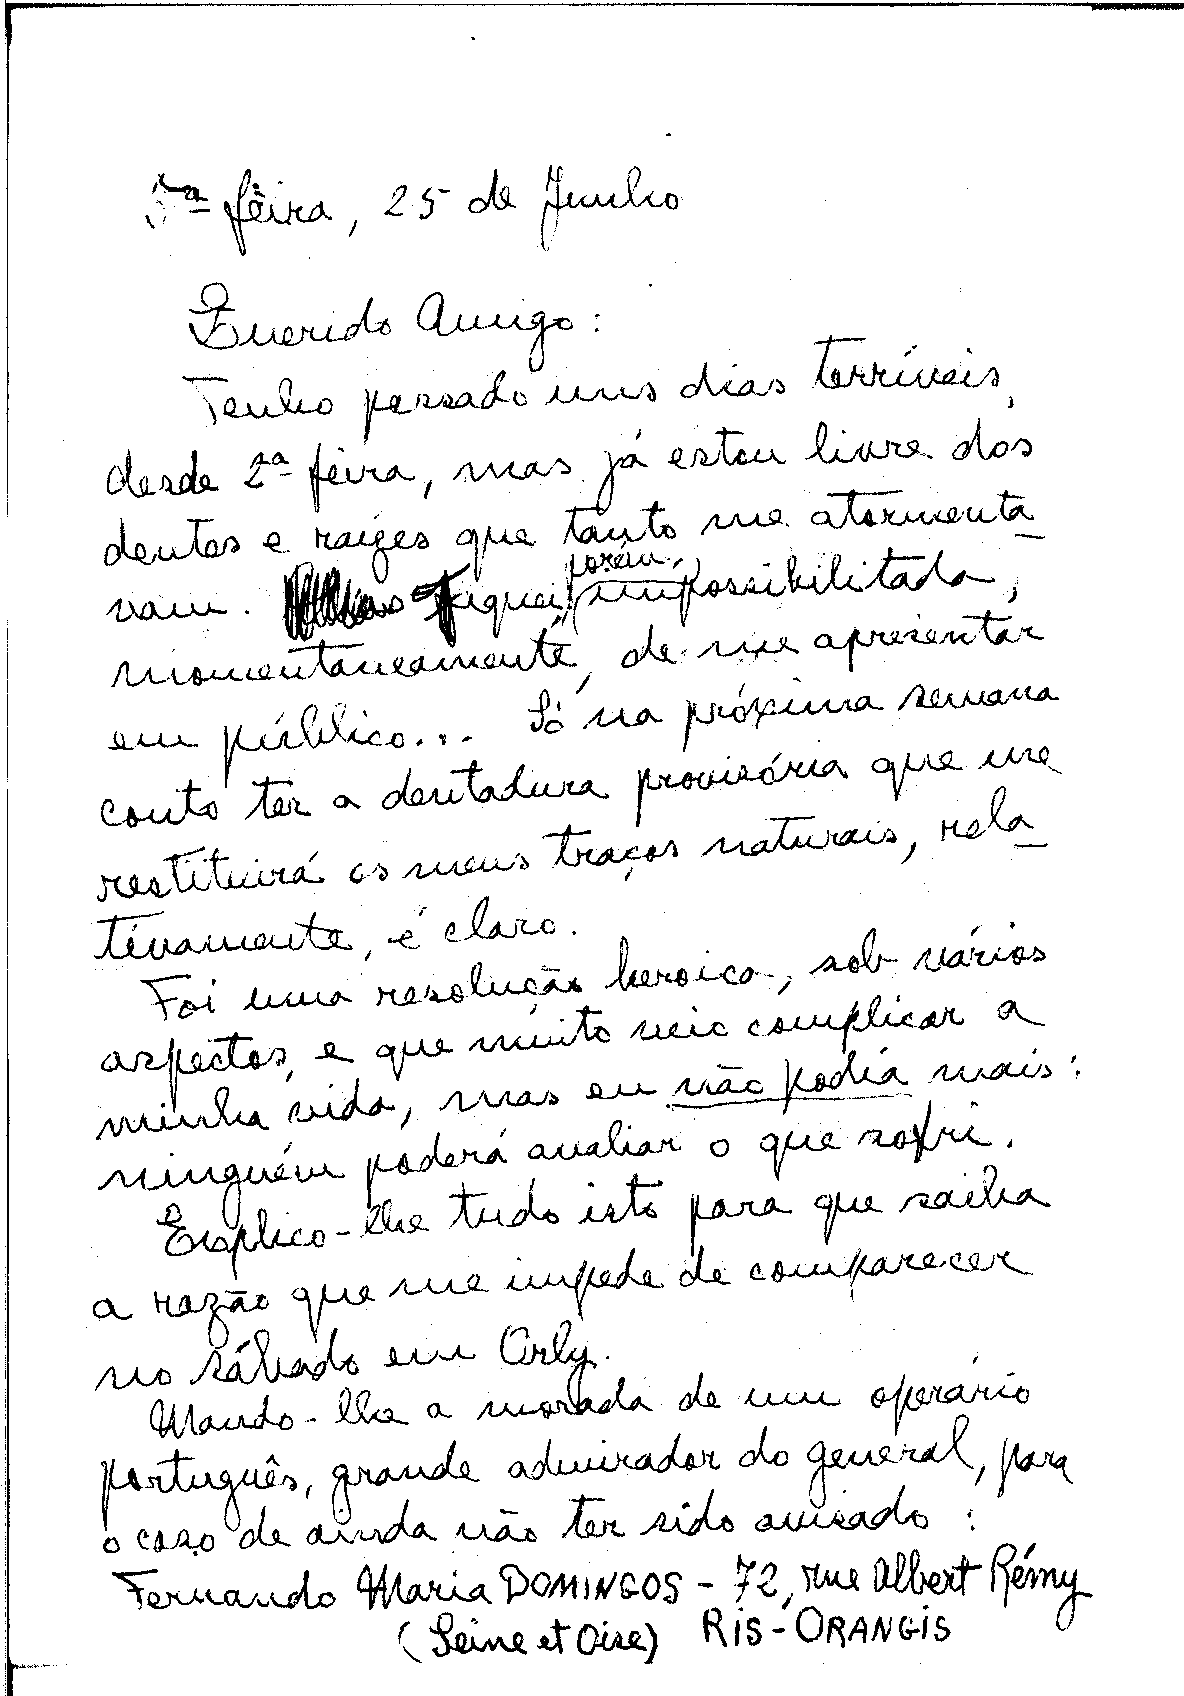 5ª feira, 25 de Junho
Querido Amigo:
Tenho passado uns dias terríveis,
desde 2ª feira, mas já estou livre dos
dentes e raízes que tanto me atormenta-
vam. Fiquei, porém, impossibilitada,
momentaneamente, de me apresentar
em público... Só na próxima semana
conto ter a dentadura provisória que me
restituirá os meus traços naturais, rela-
tivamente, é claro.
Foi uma resolução heroica, sob vários
aspectos, e que muito veio complicar a
minha vida, mas eu não podia mais:
ninguém poderá avaliar o que sofri.
Explico-lhe tudo isto para que saiba
a razão que me impede de comparecer
no sábado em Orly.
Mando-lhe a morada de um operário
português, grande admirador do general, para
o caso de ainda não ter sido avisado:
Fernando Maria DOMINGOS - 72, rue Albert Rémy
(Seine et Oise) RIS-ORANGIS